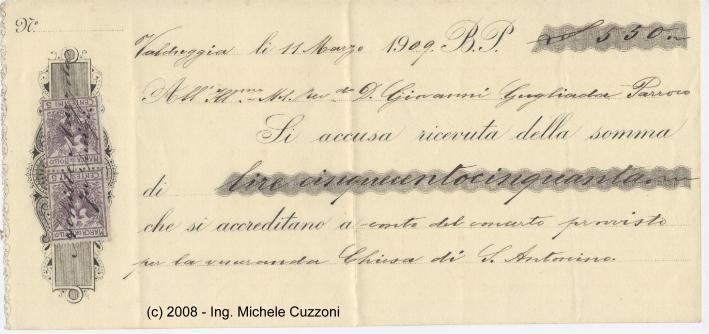 N.º
Valduggia li 11 Marzo 1909. B.P. £ 550.
All' Ill.mo M.to Rev.do D. Giovanni Gugliada Parroco
Si accusa ricevuta della somma
di lire cinquecentocinquanta
che si accreditano a conto del concerto provvisto
per la veneranda Chiesa di S. Antonino.
MARCA DA BOLLO
CENTESIMI 5
MARCA DA BOLLO
(c) 2008 - Ing. Michele Cuzzoni